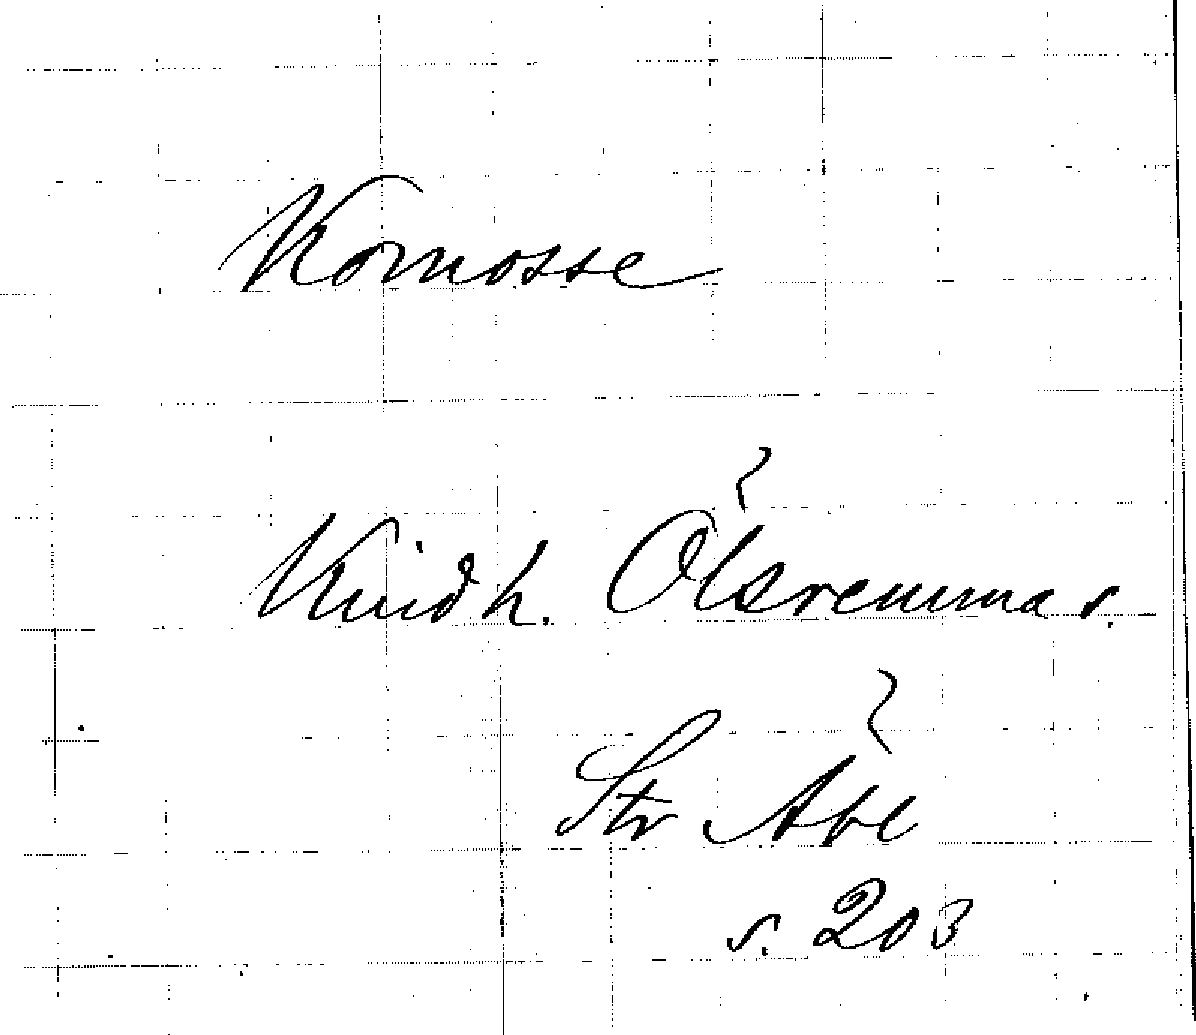 Komosse
Kindh. Ölsremma s.
Str Abl
s. 203